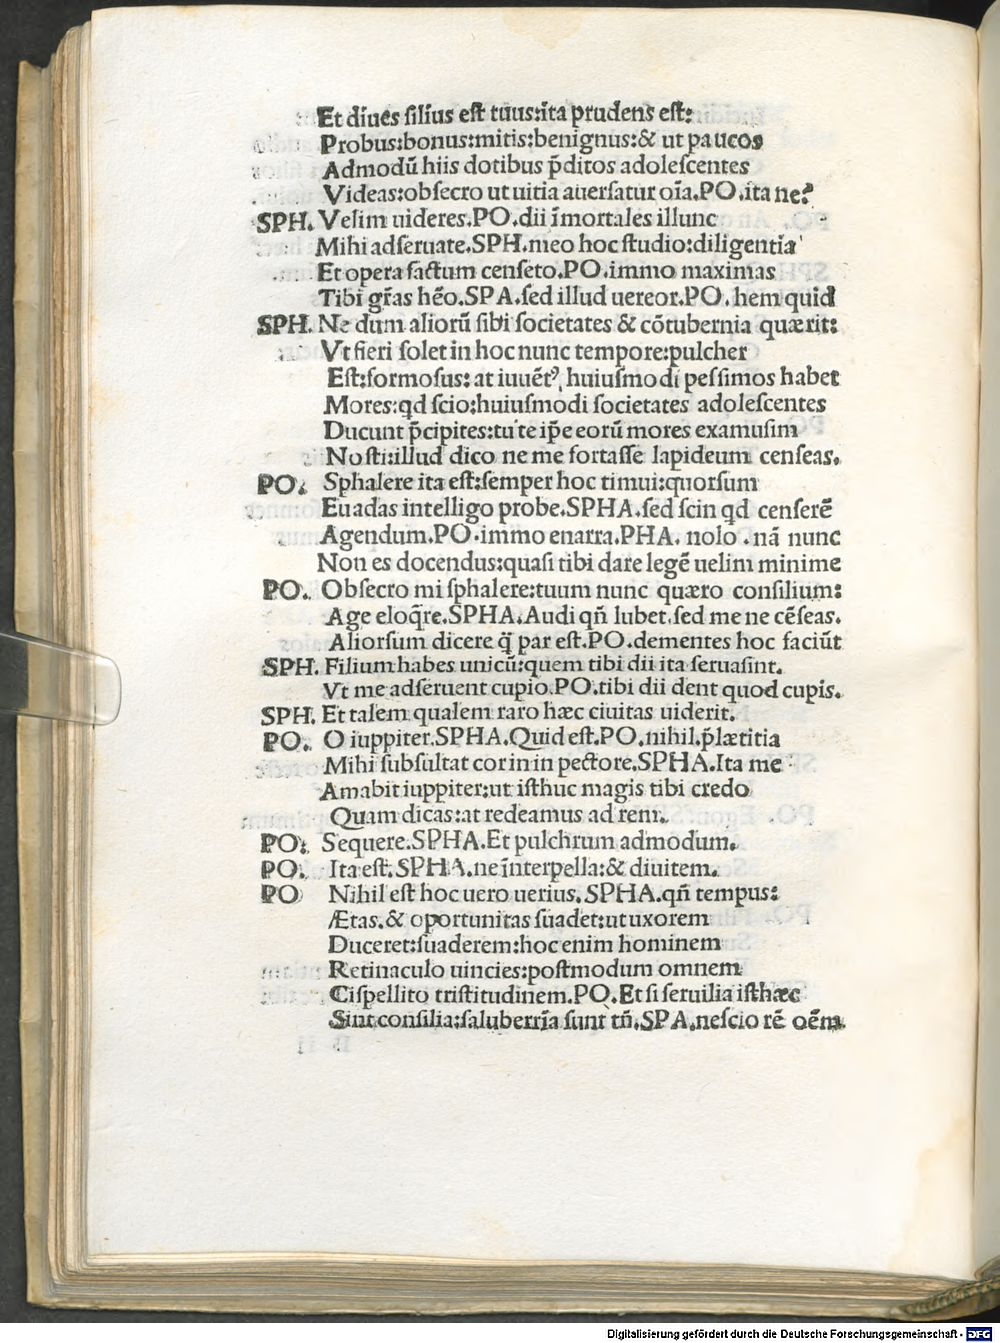 Et diues filius est tuus:ita prudens est:
Probus:bonus:mitis:benignus:& ut paucos
Admodū hiis dotibus p̄ditos adolescentes
Videas:obsecro ut uitia auersatur oīa.PO.ita ne?
SPH. Velim uideres.PO.dii īmortales illunc
Mihi adseruate.SPH.meo hoc studio:diligentia
Et opera factum censeto.PO.immo maximas
Tibi gr̄as hēo.SPA.sed illud uereor.PO.hem quid
SPH. Ne dum aliorū sibi societates & cōtubernia quærit:
Vt fieri solet in hoc nunc tempore:pulcher
Est:formosus: at iuuēt⁹, huiusmodi pessimos habet
Mores:qd scio:huiusmodi societates adolescentes
Ducunt p̄cipites:tu te ip̄e eorū mores examusim
Nosti:illud dico ne me fortasse lapideum censeas.
PO. Sphalere ita est:semper hoc timui:quorsum
Euadas intelligo probe.SPHA.sed scin qd censerē
Agendum.PO.immo enarra.PHA. nolo .nā nunc
Non es docendus:quasi tibi dare legē uelim minime
PO. Obsecro mi sphalere:tuum nunc quæro consilium:
Age eloq̄re.SPHA.Audi qn̄ lubet.sed me ne cēseas.
Aliorsum dicere q̄ par est.PO.dementes hoc faciūt
SPH. Filium habes unicū:quem tibi dii ita seruasint.
Vt me adseruent cupio.PO.tibi dii dent quod cupis.
SPH. Et talem qualem raro hæc ciuitas uiderit.
PO. O iuppiter.SPHA.Quid est.PO.nihil.p̄lætitia
Mihi subsultat cor in in pectore.SPHA.Ita me
Amabit iuppiter:ut isthuc magis tibi credo
Quam dicas:at redeamus ad rem.
PO. Sequere.SPHA.Et pulchrum admodum.
PO. Ita est.SPHA.ne īnterpella:& diuitem.
PO Nihil est hoc uero uerius.SPHA.qn̄ tempus:
Ætas.& oportunitas suadet:ut uxorem
Duceret:suaderem:hoc enim hominem
Retinaculo uincies:postmodum omnem
Cispellito tristitudinem.PO.Et si seruilia isthæc
Sint consilia:saluberrīa sunt tn̄.SPA.nescio rē oēm.
Digitalisierung gefördert durch die Deutsche Forschungsgemeinschaft - DFG